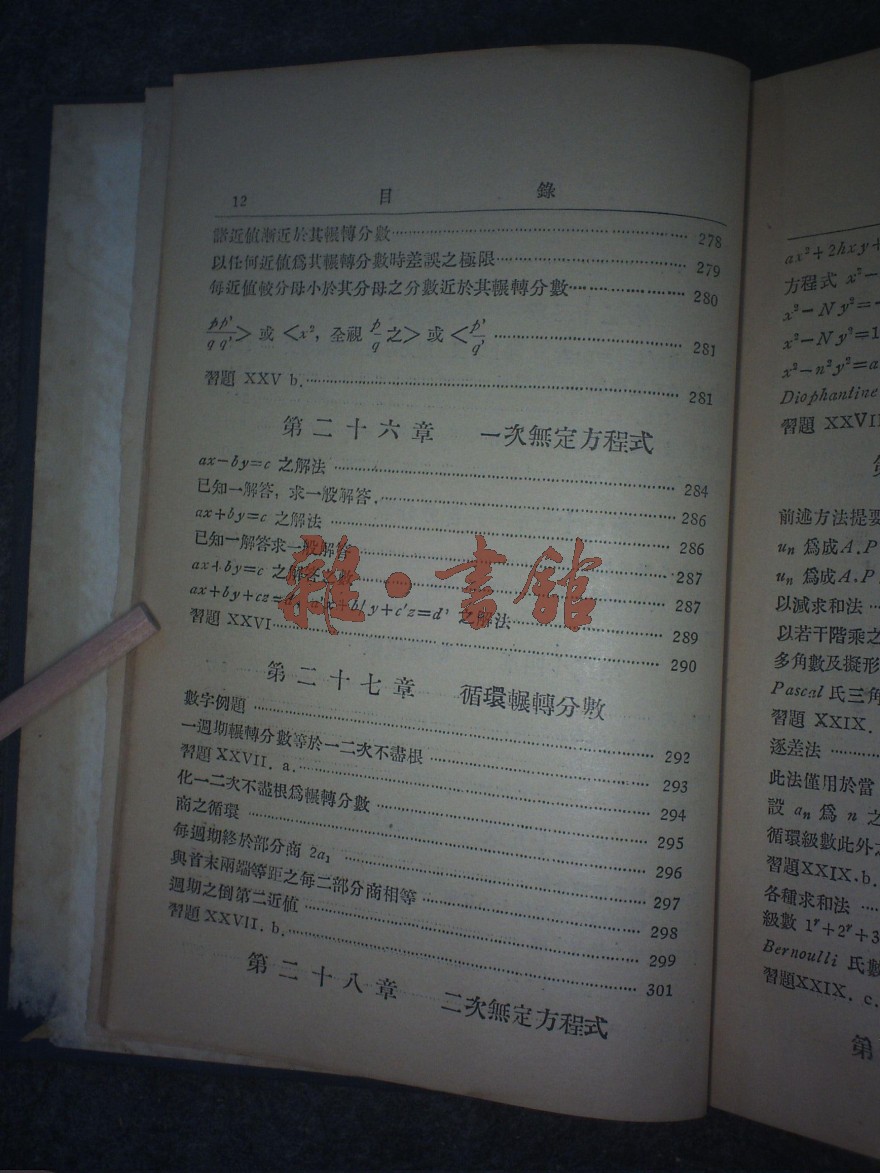 12 目 錄
諸近値漸近於其輾轉分數 278
以任何近値爲其輾轉分數時差誤之極限 279
每近値較分母小於其分母之分數近於其輾轉分數 280
pp'/qq' > 或 <x², 全視 p/q 之> 或 <p'/q' 281
習題 XXV b. 281
第二十六章 一次無定方程式
ax−by=c 之解法 284
已知一解答，求一般解答. 286
ax+by=c 之解法 286
已知一解答求一般解答 287
ax+by=c 之解答之數 287
ax+by+cz=d, a'x+b'y+c'z=d' 之解法 289
習題 XXVI 290
第二十七章 循環輾轉分數
數字例題 292
一週期輾轉分數等於一二次不盡根 293
習題 XXVII. a. 294
化一二次不盡根爲輾轉分數 295
商之循環 296
每週期終於部分商 2a₁ 297
與首末兩端等距之每二部分商相等 298
週期之倒第二近値 299
習題 XXVII. b. 301
第二十八章 二次無定方程式
雜·書館
ax²+2hxy+
方程式 x²−
x²−Ny²=−
x²−Ny²=1
x²−n²y²=a
Diophantine
習題 XXVII
第
前述方法提要
uₙ 爲成 A.P
uₙ 爲成 A.P
以減求和法
以若干階乘之
多角數及擬形
Pascal 氏三角
習題 XXIX.
逐差法
此法僅用於當
設 aₙ 爲 n 之
循環級數此外
習題XXIX.b.
各種求和法
級數 1ʳ+2ʳ+3
Bernoulli 氏數
習題XXIX. c.
第